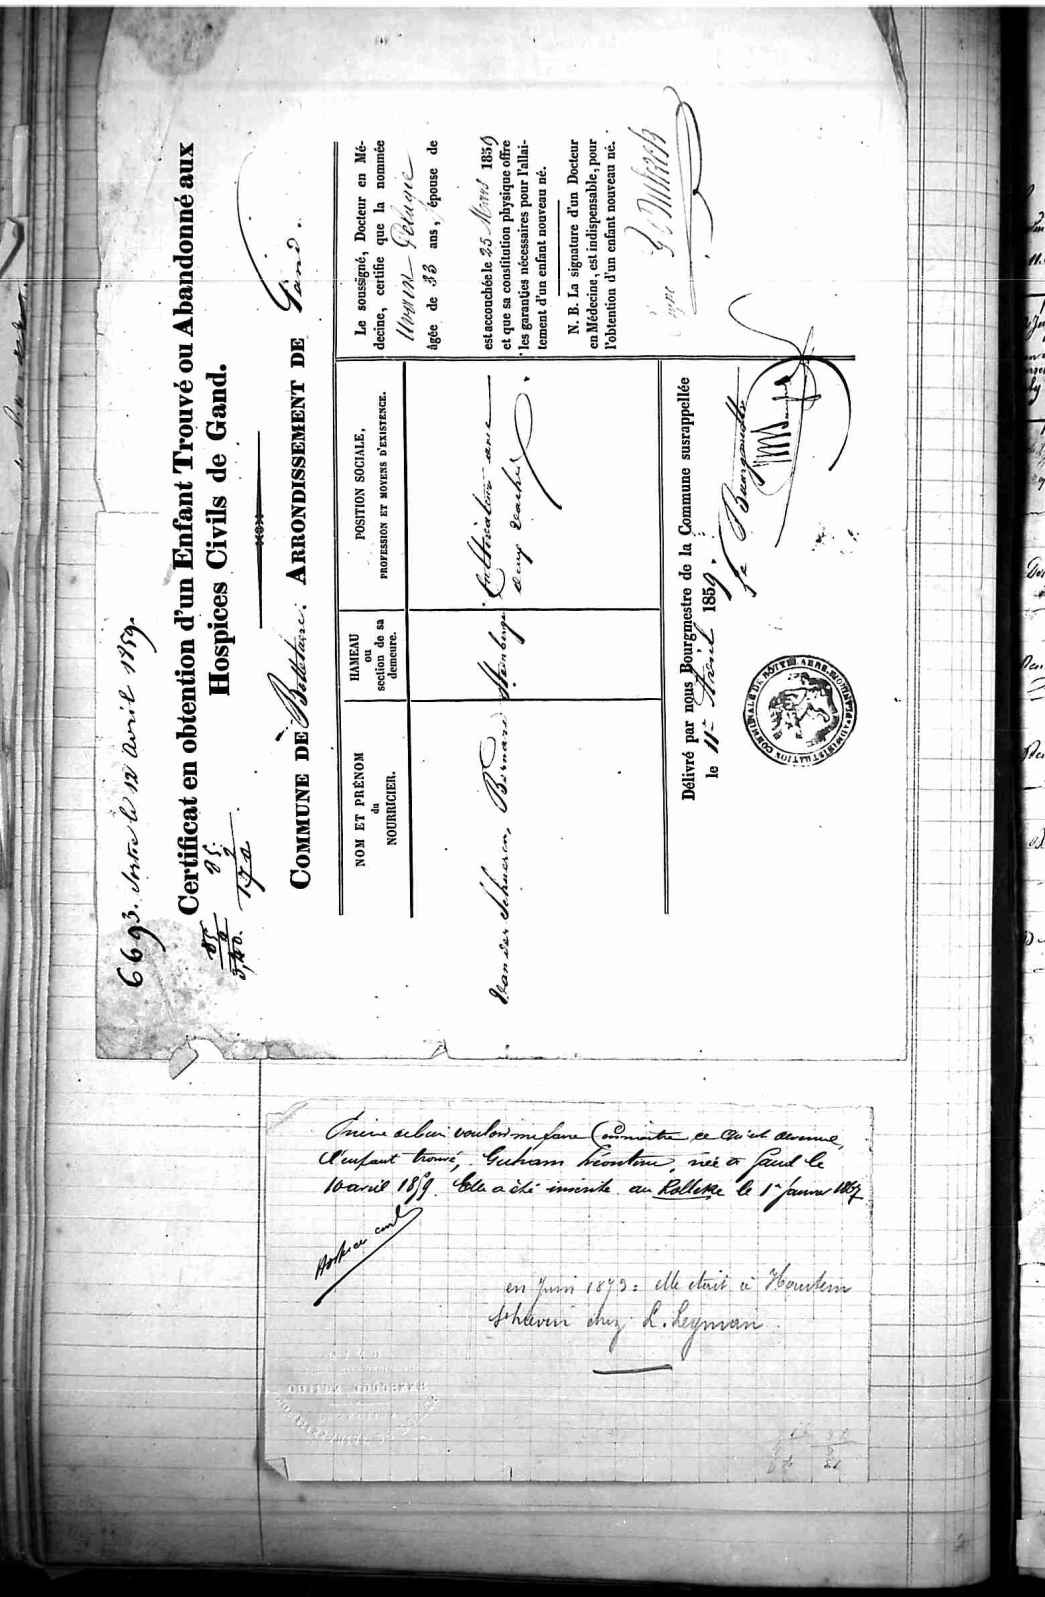 6693. Sortie le 12 avril 1859.
Certificat en obtention d'un Enfant Trouvé ou Abandonné aux
Hospices Civils de Gand.
85
2
170
85
4
3,40.
COMMUNE DE Bottelaere. ARRONDISSEMENT DE Gand.
NOM ET PRÉNOM
du
NOURRICIER.
HAMEAU
ou
section de sa
demeure.
POSITION SOCIALE,
PROFESSION ET MOYENS D'EXISTENCE.
Van der Schueren, Bernard
Steenberge
Cultivateur avec
deux vaches.
Le soussigné, Docteur en Mé-
decine, certifie que la nommée
Pélagie
âgée de 33 ans, épouse de
est accouchée le 25 Mars 1859
et que sa constitution physique offre
les garanties nécessaires pour l'allai-
tement d'un enfant nouveau né.
N. B. La signature d'un Docteur
en Médecine, est indispensable, pour
l'obtention d'un enfant nouveau né.
Délivré par nous Bourgmestre de la Commune susrappellée
le 11 Avril 1859.
Le Bourgmestre
ADMINISTRATION COMMUNALE DE BOTTELAERE
Prière de bien vouloir me faire Connaitre ce qu'est devenue,
l'enfant trouvé, Léontine, née à Gand le
10 avril 1859. Elle a été inscrite au le 1er janvier 1867
Hospices civils
en Juin 1873: elle était à Houtem
St Lievin chez L. Leyman.